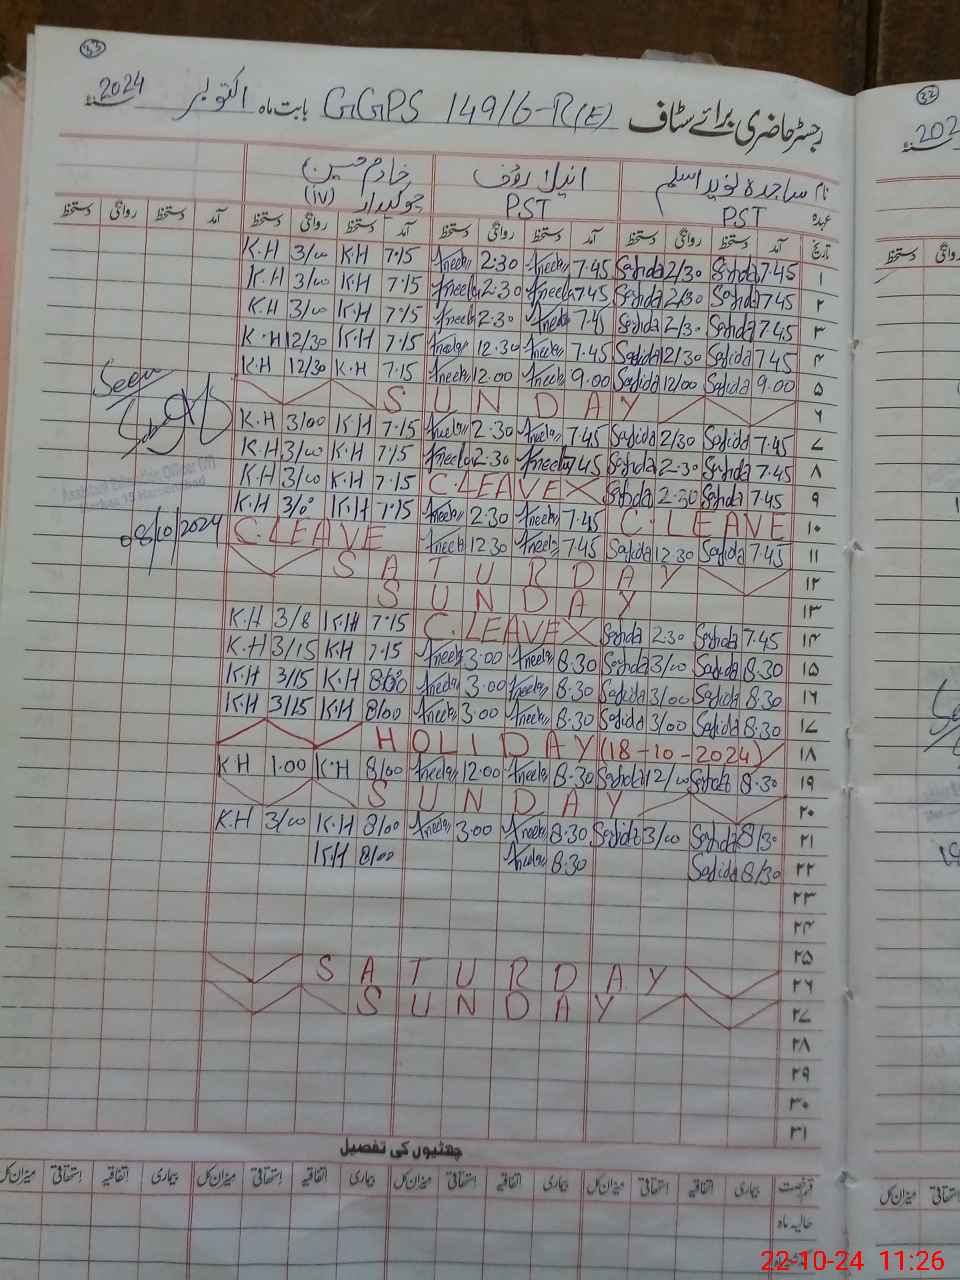 33
رجسٹر حاضری برائے سٹاف GGPS 149/6-R(E) بابت ماہ اکتوبر 2024
32
202
نام ساجدہ نوید اسلم انیلا رؤف خادم حسین
عہدہ PST PST چوکیدار (iv)
تاریخ آمد دستخط روانگی دستخط آمد دستخط روانگی دستخط آمد دستخط روانگی دستخط آمد دستخط روانگی دستخط
K.H 3/00 K.H 7.15 Aneela 2.30 Aneela 7.45 Sajida 2/30 Sajida 7.45 ۱
K.H 3/00 K.H 7.15 Aneela 2.30 Aneela 7.45 Sajida 2/30 Sajida 7.45 ۲
K.H 3/00 K.H 7.15 Aneela 2.30 Aneela 7.45 Sajida 2/30 Sajida 7.45 ۳
K.H 12/30 K.H 7.15 Aneela 12.30 Aneela 7.45 Sajida 12/30 Sajida 7.45 ۴
K.H 12/30 K.H 7.15 Aneela 12.00 Aneela 9.00 Sajida 12/00 Sajida 9.00 ۵
SUNDAY ۶
K.H 3/00 K.H 7.15 Aneela 2.30 Aneela 7.45 Sajida 2/30 Sajida 7.45 ۷
K.H 3/00 K.H 7.15 Aneela 2.30 Aneela 7.45 Sajida 2.30 Sajida 7.45 ۸
K.H 3/00 K.H 7.15 C.LEAVE X Sajida 2.30 Sajida 7.45 ۹
K.H 3/0 K.H 7.15 Aneela 2.30 Aneela 7.45 C.LEAVE ۱۰
C.LEAVE Aneela 12.30 Aneela 7.45 Sajida 12.30 Sajida 7.45 ۱۱
SATURDAY ۱۲
SUNDAY ۱۳
K.H 3/8 K.H 7.15 C.LEAVE X Sajida 2.30 Sajida 7.45 ۱۴
K.H 3/15 K.H 7.15 Aneela 3.00 Aneela 8.30 Sajida 3/00 Sajida 8.30 ۱۵
K.H 3/15 K.H 8/00 Aneela 3.00 Aneela 8.30 Sajida 3/00 Sajida 8.30 ۱۶
K.H 3/15 K.H 8/00 Aneela 3.00 Aneela 8.30 Sajida 3/00 Sajida 8.30 ۱۷
HOLIDAY (18-10-2024) ۱۸
K.H 1.00 K.H 8/00 Aneela 12.00 Aneela 8.30 Sajida 12/00 Sajida 8.30 ۱۹
SUNDAY ۲۰
K.H 3/00 K.H 8/00 Aneela 3.00 Aneela 8.30 Sajida 3/00 Sajida 8/30 ۲۱
K.H 8/00 Aneela 8.30 Sajida 8/30 ۲۲
۲۳
۲۴
۲۵
SATURDAY ۲۶
SUNDAY ۲۷
۲۸
۲۹
۳۰
۳۱
Seen
08/10/2024
چھٹیوں کی تفصیل
قسم رخصت بیماری اتفاقیہ استحقاقی میزان کل بیماری اتفاقیہ استحقاقی میزان کل بیماری اتفاقیہ استحقاقی میزان کل بیماری اتفاقیہ استحقاقی میزان کل
حالیہ ماہ
22-10-24 11:26